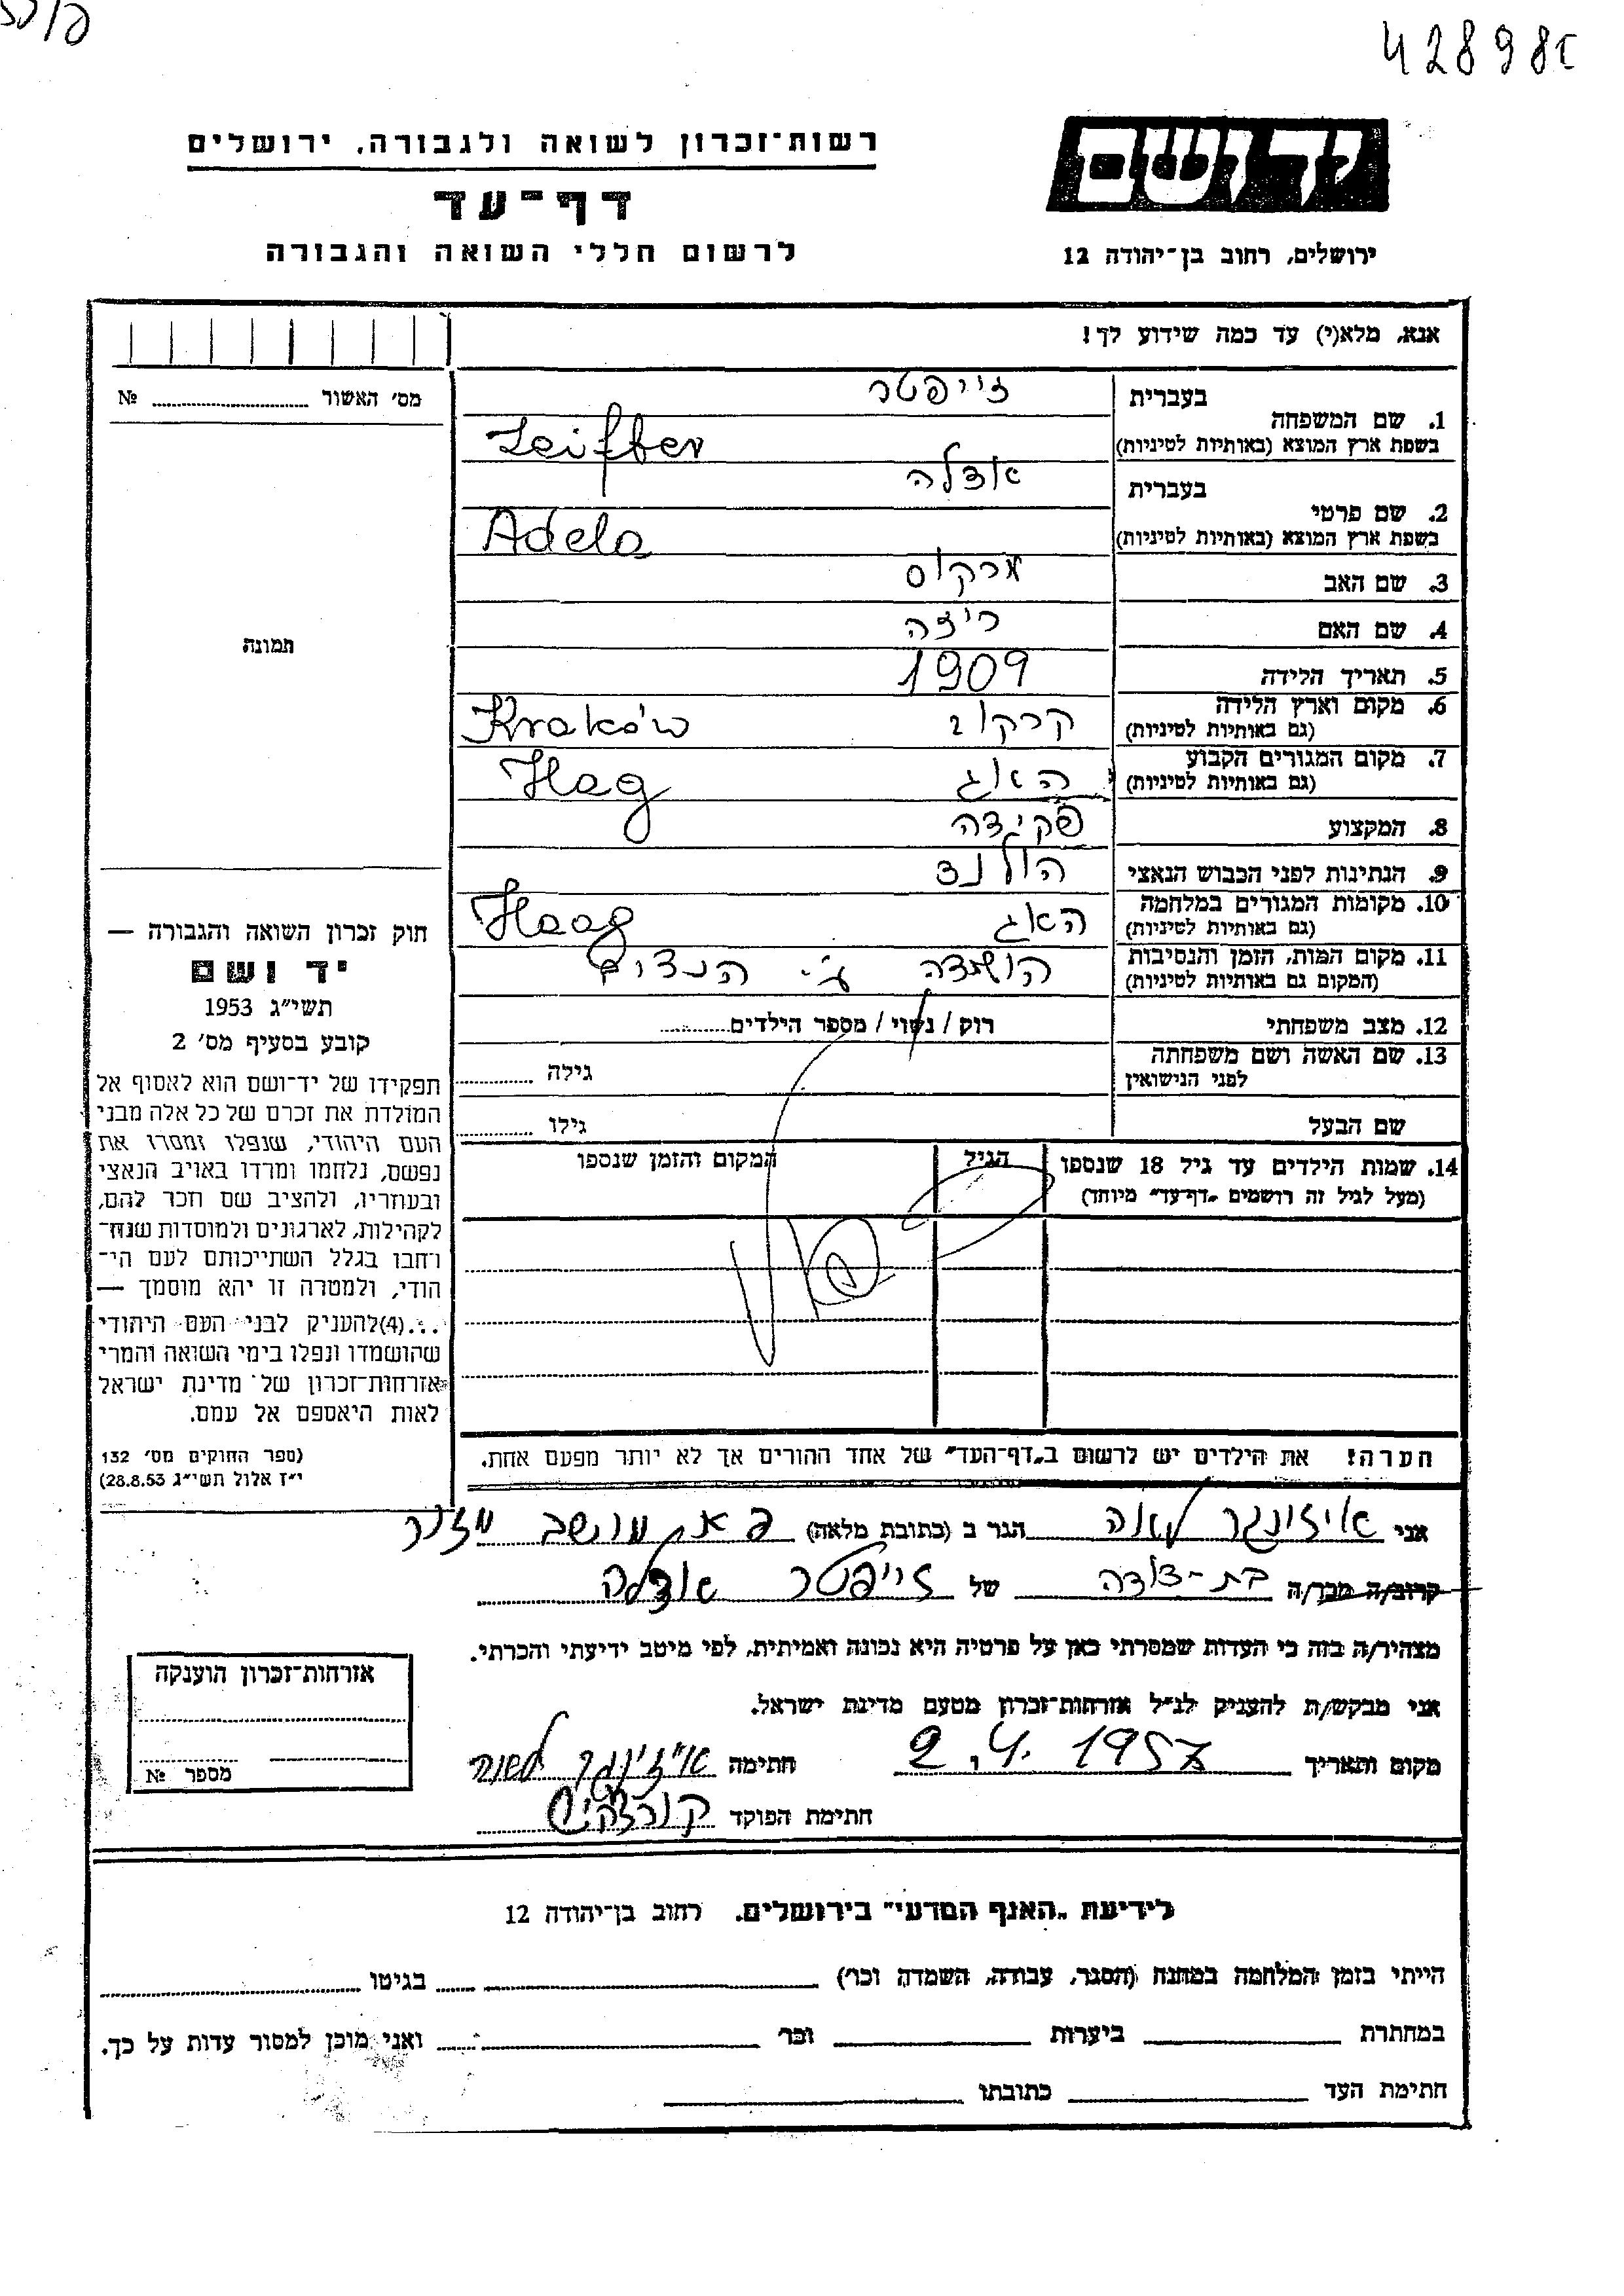 42898
רשות־זכרון לשואה ולגבורה, ירושלים
דף־עד
לרשום חללי השואה והגבורה
יד ושם
ירושלים, רחוב בן־יהודה 12
אנא, מלא(י) עד כמה שידוע לך!
מס׳ האשור № ........
1. שם המשפחה
בעברית
זייפטר
בשפת ארץ המוצא (באותיות לטיניות)
Zeifter
2. שם פרטי
בעברית
אדלה
בשפת ארץ המוצא (באותיות לטיניות)
Adela
3. שם האב
מרקוס
4. שם האם
ריזה
5. תאריך הלידה
1909
6. מקום וארץ הלידה
(גם באותיות לטיניות)
קרקוב Kraków
7. מקום המגורים הקבוע
(גם באותיות לטיניות)
האג Hag
8. המקצוע
פקידה
9. הנתינות לפני הכבוש הנאצי
הולנד
10. מקומות המגורים במלחמה
(גם באותיות לטיניות)
האג Haag
11. מקום המות, הזמן והנסיבות
(המקום גם באותיות לטיניות)
הושמדה ע״י הנצים
12. מצב משפחתי
רוק / נשוי / מספר הילדים........
13. שם האשה ושם משפחתה
לפני הנישואין
גילה ........
שם הבעל
גילו ........
14. שמות הילדים עד גיל 18 שנספו
(מעל לגיל זה רושמים „דף־עד״ מיוחד)
הגיל
המקום והזמן שנספו
הערה! את הילדים יש לרשום ב„דף־העד״ של אחד ההורים אך לא יותר מפעם אחת.
תמונה
חוק זכרון השואה והגבורה —
יד ושם
תשי״ג 1953
קובע בסעיף מס׳ 2
תפקידו של יד־ושם הוא לאסוף אל
המולדת את זכרם של כל אלה מבני
העם היהודי, שנפלו ומסרו את
נפשם, נלחמו ומרדו באויב הנאצי
ובעוזריו, ולהציב שם וזכר להם,
לקהילות, לארגונים ולמוסדות שנח־
רבו בגלל השתייכותם לעם הי־
הודי, ולמטרה זו יהא מוסמך —
...(4)להעניק לבני העם היהודי
שהושמדו ונפלו בימי השואה והמרי
אזרחות־זכרון של מדינת ישראל
לאות היאספם אל עמם.
(ספר החוקים מס׳ 132
י״ז אלול תשי״ג 28.8.53)
אני איזינגר לאה הגר ב (כתובת מלאה) מושב
קרוב/ה מכר/ה בת-דודה של זייפטר אדלה
מצהיר/ה בזה כי העדות שמסרתי כאן על פרטיה היא נכונה ואמיתית, לפי מיטב ידיעתי והכרתי.
אני מבקש/ת להעניק לנ״ל אזרחות־זכרון מטעם מדינת ישראל.
מקום ותאריך 2.4.1957 חתימה איזינגר לאה
חתימת הפוקד
אזרחות־זכרון הוענקה
מספר №
לידיעת „האגף המדעי״ בירושלים, רחוב בן־יהודה 12
הייתי בזמן המלחמה במחנה (הסגר, עבודה, השמדה וכו׳) ........ בגיטו ........
במחתרת ........ ביערות ........ וכו׳ ........ ואני מוכן למסור עדות על כך.
חתימת העד ........ כתובתו ........